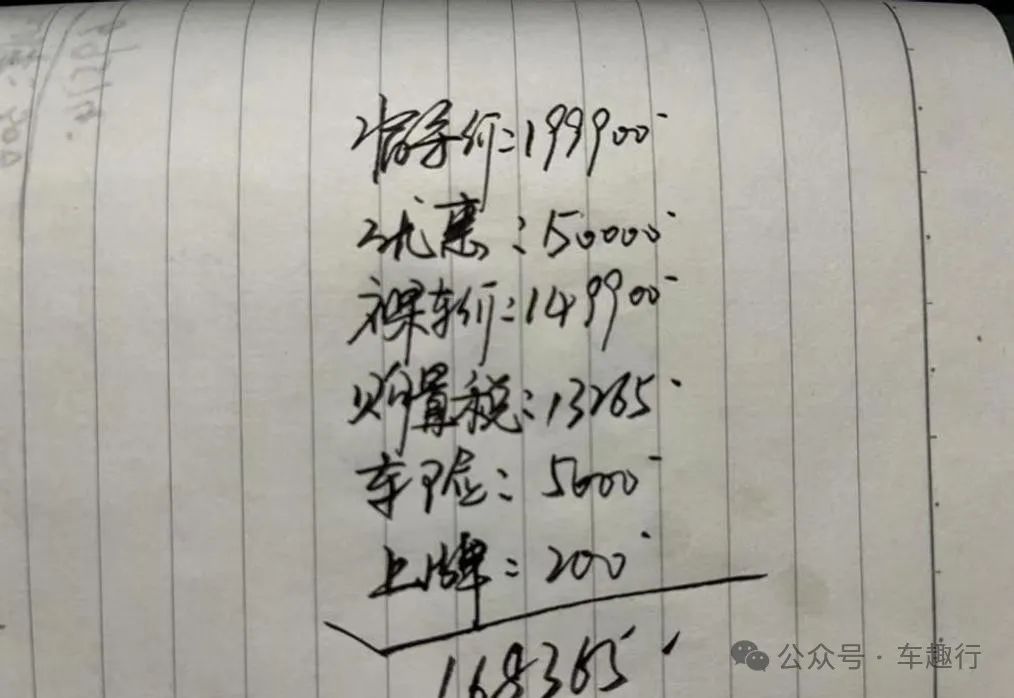 指导价:199900
优惠:50000
裸车价:149900
购置税:13265
车险:5000
上牌:200
168365
公众号·车趣行